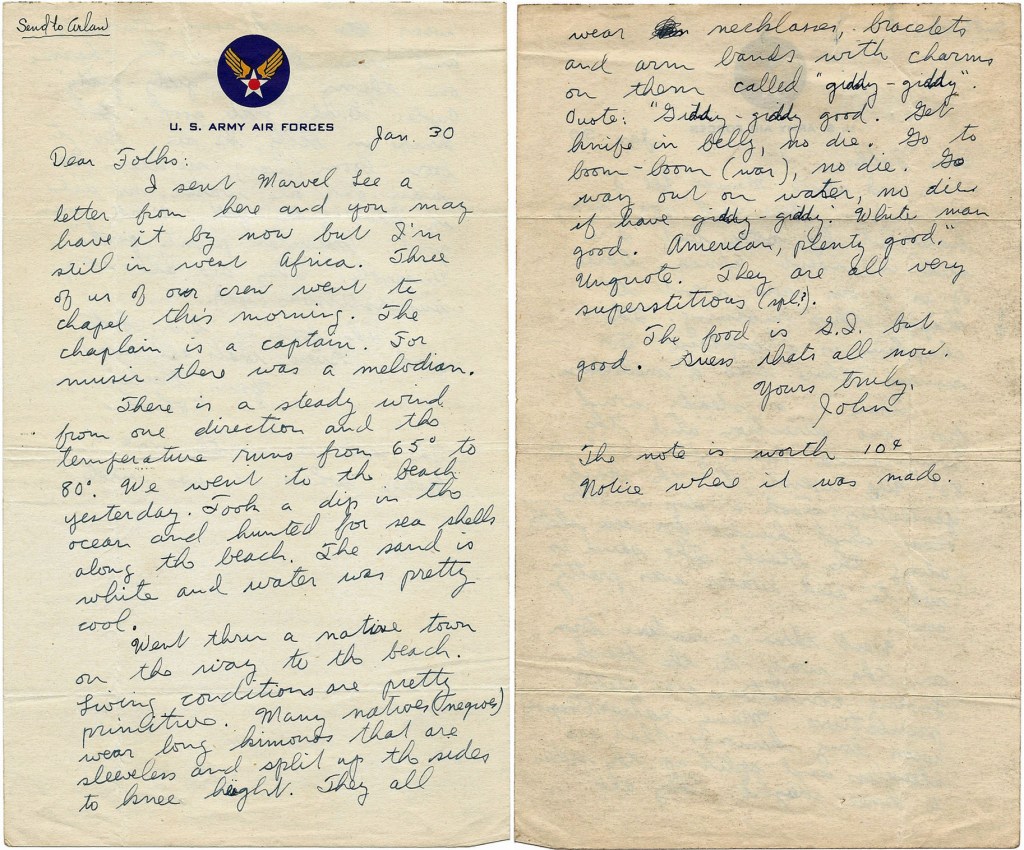 Send to Arlan
U. S. ARMY AIR FORCES
Jan. 30
Dear Folks:
I sent Marvel Lee a
letter from here and you may
have it by now but I'm
still in west Africa. Three
of us of our crew went to
chapel this morning. The
chaplain is a captain. For
music there was a melodian.
There is a steady wind
from one direction and the
temperature runs from 65° to
80°. We went to the beach
yesterday. Took a dip in the
ocean and hunted for sea shells
along the beach. The sand is
white and water was pretty
cool.
Went thru a native town
on the way to the beach.
Living conditions are pretty
primative. Many natives (negroes)
wear long kimonos that are
sleeveless and split up the sides
to knee height. They all
wear necklasses, bracelets
and arm bands with charms
on them called "giddy-giddy".
Quote: "Giddy-giddy good. Get
knife in belly, no die. Go to
boom-boom (war), no die. Go
way out on water, no die
if have giddy-giddy. White man
good. American, plenty good."
Unquote. They are all very
superstitious (spl?).
The food is G.I. but
good. Guess thats all now.
Yours truly,
John
The note is worth 10¢
Notice where it was made.